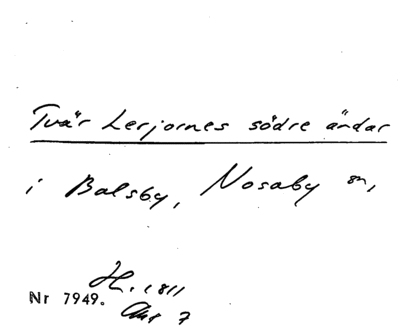 Tvär Lerjornes södre ändar
i Balsby, Nosaby sn,
H. 1811
Nr 7949.
Akt 7